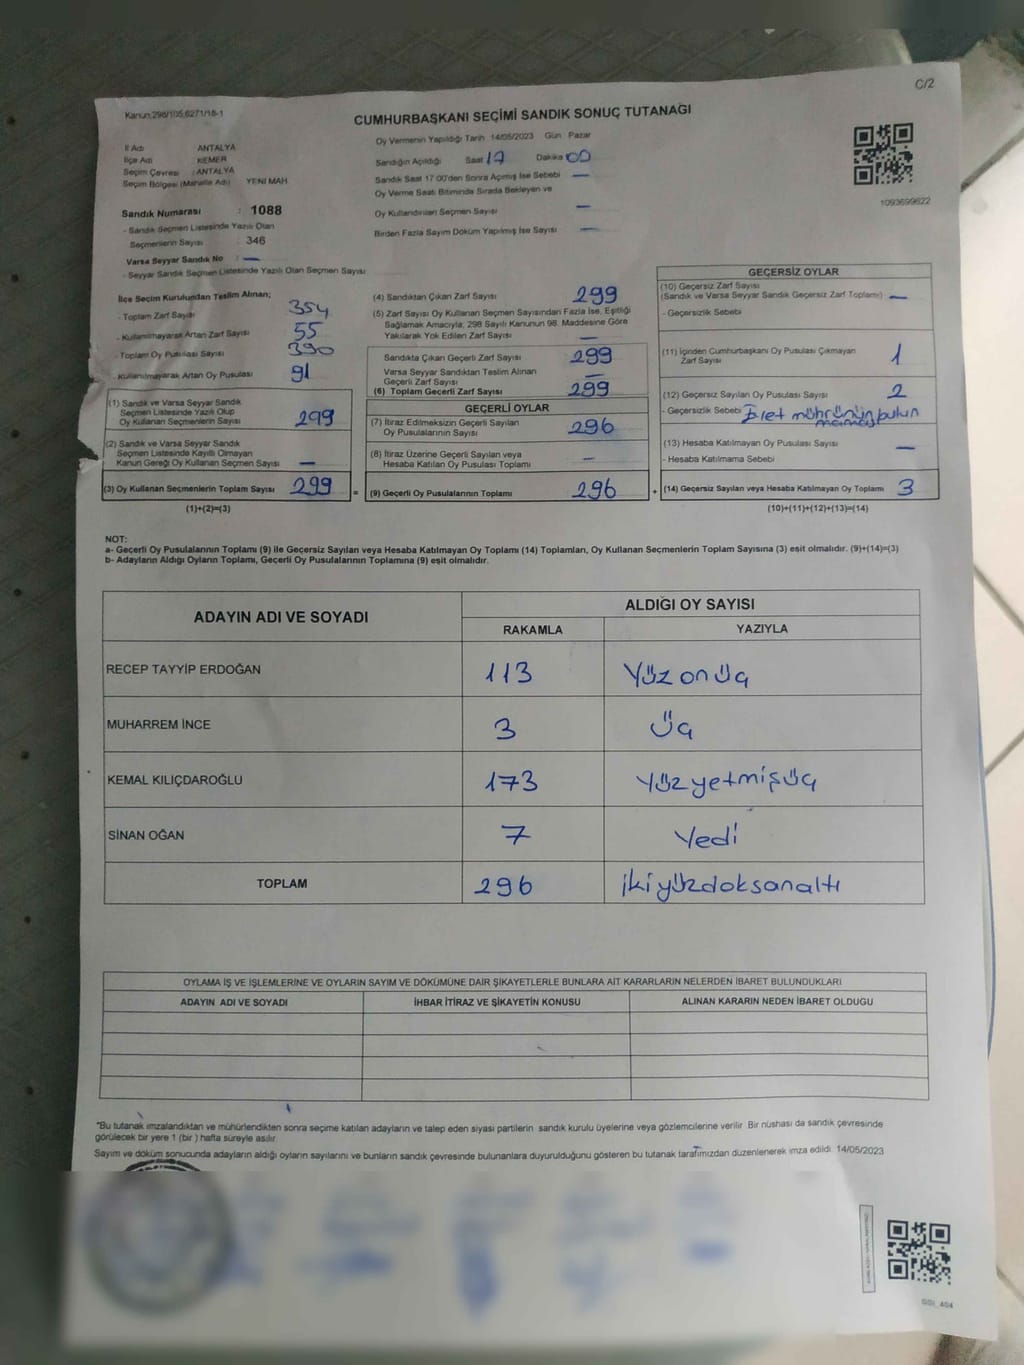 C/2
Kanun:298/105,6271/18-1
CUMHURBAŞKANI SEÇİMİ SANDIK SONUÇ TUTANAĞI
İl Adı : ANTALYA
İlçe Adı : KEMER
Seçim Çevresi : ANTALYA
Seçim Bölgesi (Mahalle Adı) : YENİ MAH
Sandık Numarası : 1088
- Sandık Seçmen Listesinde Yazılı Olan
Seçmenlerin Sayısı : 346
Varsa Seyyar Sandık No : —
- Seyyar Sandık Seçmen Listesinde Yazılı Olan Seçmen Sayısı
Oy Vermenin Yapıldığı Tarih 14/05/2023 Gün Pazar
Sandığın Açıldığı Saat 17 Dakika 00
Sandık Saat 17:00'den Sonra Açılmış İse Sebebi —
Oy Verme Saati Bitiminde Sırada Bekleyen ve
Oy Kullandırılan Seçmen Sayısı —
Birden Fazla Sayım Döküm Yapılmış İse Sayısı —
1093699622
İlçe Seçim Kurulundan Teslim Alınan;
- Toplam Zarf Sayısı 354
- Kullanılmayarak Artan Zarf Sayısı 55
- Toplam Oy Pusulası Sayısı 390
- Kullanılmayarak Artan Oy Pusulası 91
(1) Sandık ve Varsa Seyyar Sandık
Seçmen Listesinde Yazılı Olup
Oy Kullanan Seçmenlerin Sayısı 299
(2) Sandık ve Varsa Seyyar Sandık
Seçmen Listesinde Kayıtlı Olmayan
Kanun Gereği Oy Kullanan Seçmen Sayısı —
(3) Oy Kullanan Seçmenlerin Toplam Sayısı 299 =
(1)+(2)=(3)
(4) Sandıktan Çıkan Zarf Sayısı 299
(5) Zarf Sayısı Oy Kullanan Seçmen Sayısından Fazla İse, Eşitliği
Sağlamak Amacıyla, 298 Sayılı Kanunun 98. Maddesine Göre
Yakılarak Yok Edilen Zarf Sayısı —
Sandıkta Çıkan Geçerli Zarf Sayısı 299
Varsa Seyyar Sandıktan Teslim Alınan
Geçerli Zarf Sayısı —
(6) Toplam Geçerli Zarf Sayısı 299
GEÇERLİ OYLAR
(7) İtiraz Edilmeksizin Geçerli Sayılan
Oy Pusulalarının Sayısı 296
(8) İtiraz Üzerine Geçerli Sayılan veya
Hesaba Katılan Oy Pusulası Toplamı —
(9) Geçerli Oy Pusulalarının Toplamı 296 +
GEÇERSİZ OYLAR
(10) Geçersiz Zarf Sayısı
(Sandık ve Varsa Seyyar Sandık Geçersiz Zarf Toplamı) —
- Geçersizlik Sebebi
(11) İçinden Cumhurbaşkanı Oy Pusulası Çıkmayan
Zarf Sayısı 1
(12) Geçersiz Sayılan Oy Pusulası Sayısı 2
- Geçersizlik Sebebi mührünün bulun
maması
(13) Hesaba Katılmayan Oy Pusulası Sayısı —
- Hesaba Katılmama Sebebi
(14) Geçersiz Sayılan veya Hesaba Katılmayan Oy Toplamı 3
(10)+(11)+(12)+(13)=(14)
NOT:
a- Geçerli Oy Pusulalarının Toplamı (9) ile Geçersiz Sayılan veya Hesaba Katılmayan Oy Toplamı (14) Toplamları, Oy Kullanan Seçmenlerin Toplam Sayısına (3) eşit olmalıdır. (9)+(14)=(3)
b- Adayların Aldığı Oyların Toplamı, Geçerli Oy Pusulalarının Toplamına (9) eşit olmalıdır.
ADAYIN ADI VE SOYADI ALDIĞI OY SAYISI
RAKAMLA YAZIYLA
RECEP TAYYİP ERDOĞAN 113 Yüz onüç
MUHARREM İNCE 3 Üç
KEMAL KILIÇDAROĞLU 173 Yüzyetmişüç
SİNAN OĞAN 7 Yedi
TOPLAM 296 İkiyüzdoksanaltı
OYLAMA İŞ VE İŞLEMLERİNE VE OYLARIN SAYIM VE DÖKÜMÜNE DAİR ŞİKAYETLERLE BUNLARA AİT KARARLARIN NELERDEN İBARET BULUNDUKLARI
ADAYIN ADI VE SOYADI İHBAR İTİRAZ VE ŞİKAYETİN KONUSU ALINAN KARARIN NEDEN İBARET OLDUĞU
*Bu tutanak imzalandıktan ve mühürlendikten sonra seçime katılan adayların ve talep eden siyasi partilerin sandık kurulu üyelerine veya gözlemcilerine verilir. Bir nüshası da sandık çevresinde
görülecek bir yere 1 (bir ) hafta süreyle asılır.
Sayım ve döküm sonucunda adayların aldığı oyların sayılarını ve bunların sandık çevresinde bulunanlara duyurulduğunu gösteren bu tutanak tarafımızdan düzenlenerek imza edildi. 14/05/2023